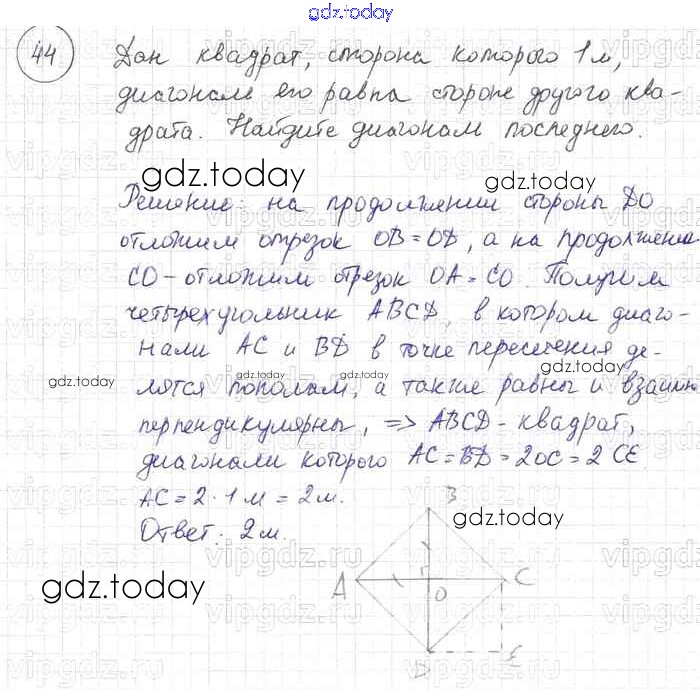 gdz.today
44 Дан квадрат, сторона которого 1 м,
диагональ его равна стороне другого ква-
драта. Найдите диагональ последнего.
gdz.today
gdz.today
Решение: на продолжении стороны DO
отложим отрезок OB = OD, а на продолжении
CO - отложим отрезок OA = CO. Получим
четырехугольник ABCD, в котором диаго-
нали AC и BD в точке пересечения де-
gdz.today gdz.today gdz.today
лятся пополам, а также равны и взаимно
перпендикулярны, => ABCD - квадрат,
диагонали которого AC = BD = 2OC = 2 CE
AC = 2 · 1 м = 2 м.
Ответ: 2 м.
B
gdz.today
gdz.today
A O C
D E
gdz.today